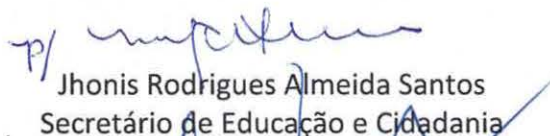 p/
Jhonis Rodrigues Almeida Santos
Secretário de Educação e Cidadania